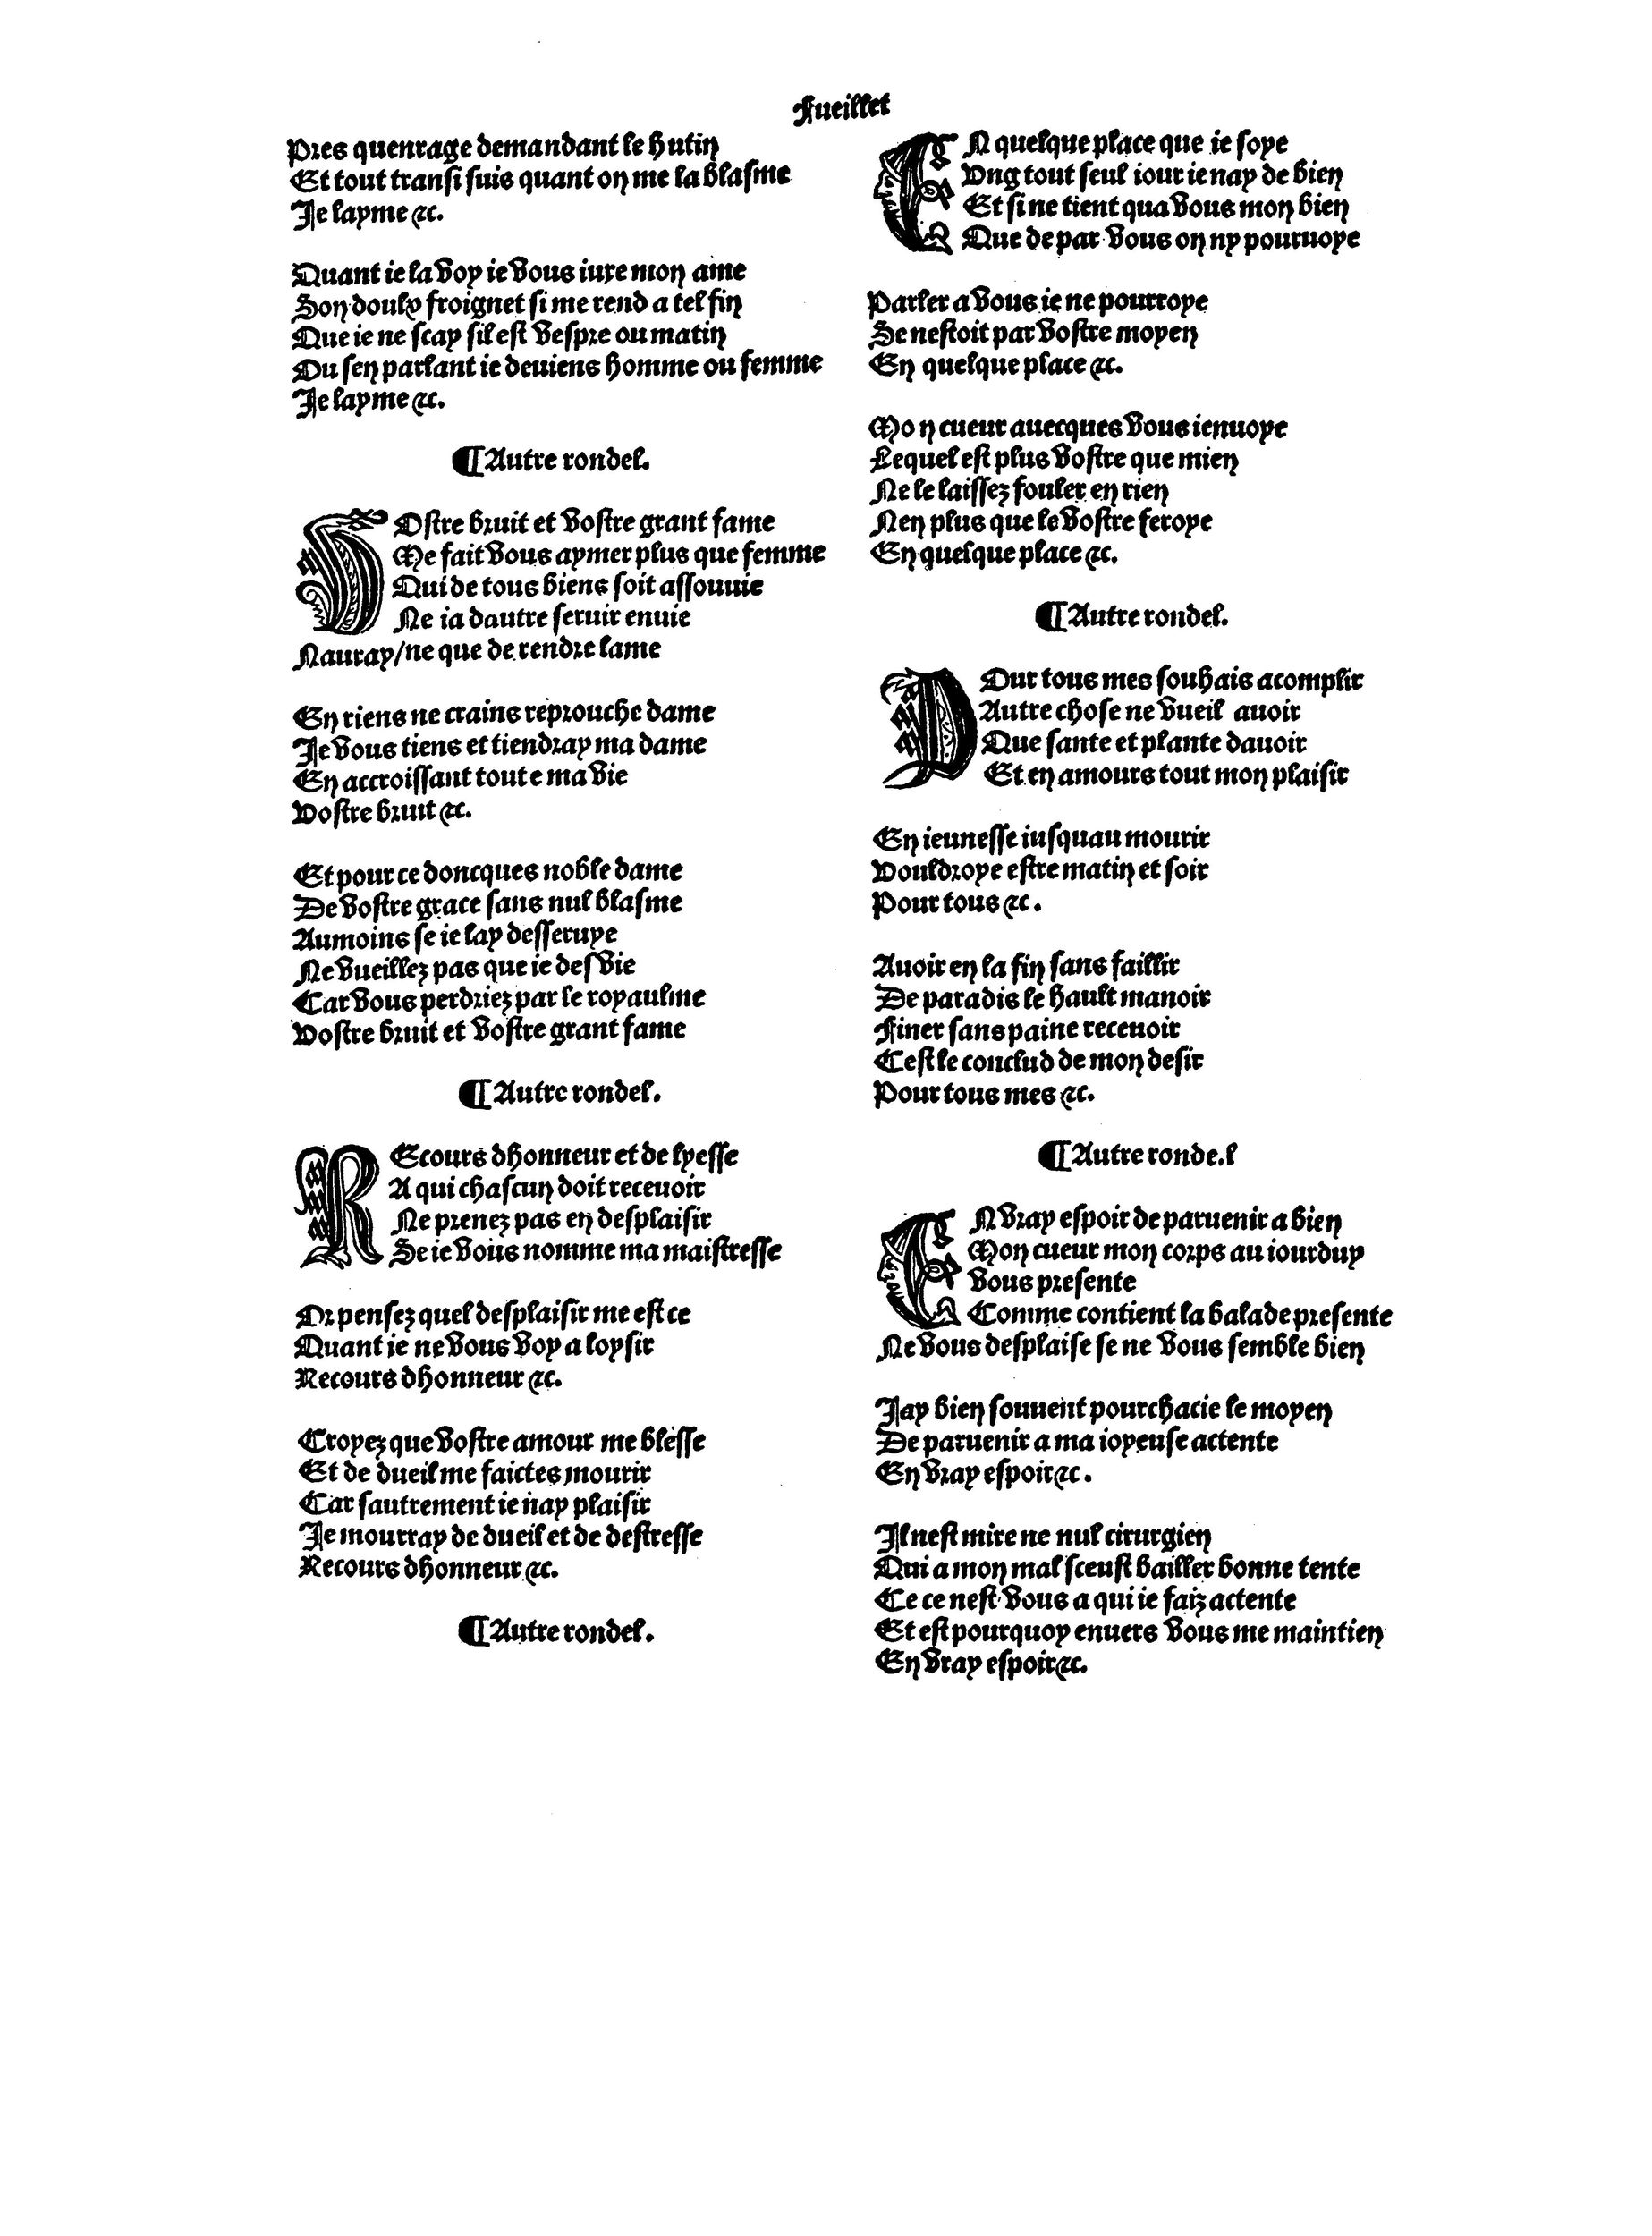 Fueillet
Pres quenrage demandant le hutin
Et tout transi suis quant on me la blasme
Je layme &c.
Quant ie la voy ie vous iure mon ame
Son doulx froignet si me rend a tel fin
Que ie ne scay sil est vespre ou matin
Ou sen parlant ie deuiens homme ou femme
Je layme &c.
¶ Autre rondel.
VOstre bruit et vostre grant fame
Me fait vous aymer plus que femme
Qui de tous biens soit assouuie
Ne ia dautre seruir enuie
Nauray/ne que de rendre lame
En riens ne crains reprouche dame
Je vous tiens et tiendray ma dame
En accroissant toute ma vie
Vostre bruit &c.
Et pour ce doncques noble dame
De vostre grace sans nul blasme
Aumoins se ie lay desseruye
Ne vueillez pas que ie desvie
Car vous perdriez par le royaulme
Vostre bruit et vostre grant fame
¶ Autre rondel.
REcours dhonneur et de lyesse
A qui chascun doit receuoir
Ne prenez pas en desplaisir
Se ie vous nomme ma maistresse
Or pensez quel desplaisir me est ce
Quant ie ne vous voy a loysir
Recours dhonneur &c.
Croyez que vostre amour me blesse
Et de dueil me faictes mourir
Car sautrement ie nay plaisir
Je mourray de dueil et de destresse
Recours dhonneur &c.
¶ Autre rondel.
EN quelque place que ie soye
Vng tout seul iour ie nay de bien
Et si ne tient qua vous mon bien
Que de par vous on ny pouruoye
Parler a vous ie ne pourroye
Se nestoit par vostre moyen
En quelque place &c.
Mon cueur auecques vous ienuoye
Lequel est plus vostre que mien
Ne le laissez fouler en rien
Nen plus que le vostre feroye
En quelque place &c.
¶ Autre rondel.
POur tous mes souhais acomplir
Autre chose ne vueil auoir
Que sante et plante dauoir
Et en amours tout mon plaisir
En ieunesse iusquau mourir
Vouldroye estre matin et soir
Pour tous &c.
Auoir en la fin sans faillir
De paradis le hault manoir
Finer sans paine receuoir
Cest le conclud de mon desir
Pour tous mes &c.
¶ Autre ronde.l
EN vray espoir de paruenir a bien
Mon cueur mon corps au iourduy
vous presente
Comme contient la balade presente
Ne vous desplaise se ne vous semble bien
Jay bien souuent pourchacie le moyen
De paruenir a ma ioyeuse actente
En vray espoir &c.
Il nest mire ne nul cirurgien
Qui a mon mal sceust bailler bonne tente
Ce ce nest vous a qui ie faiz actente
Et est pourquoy enuers vous me maintien
En vray espoir &c.